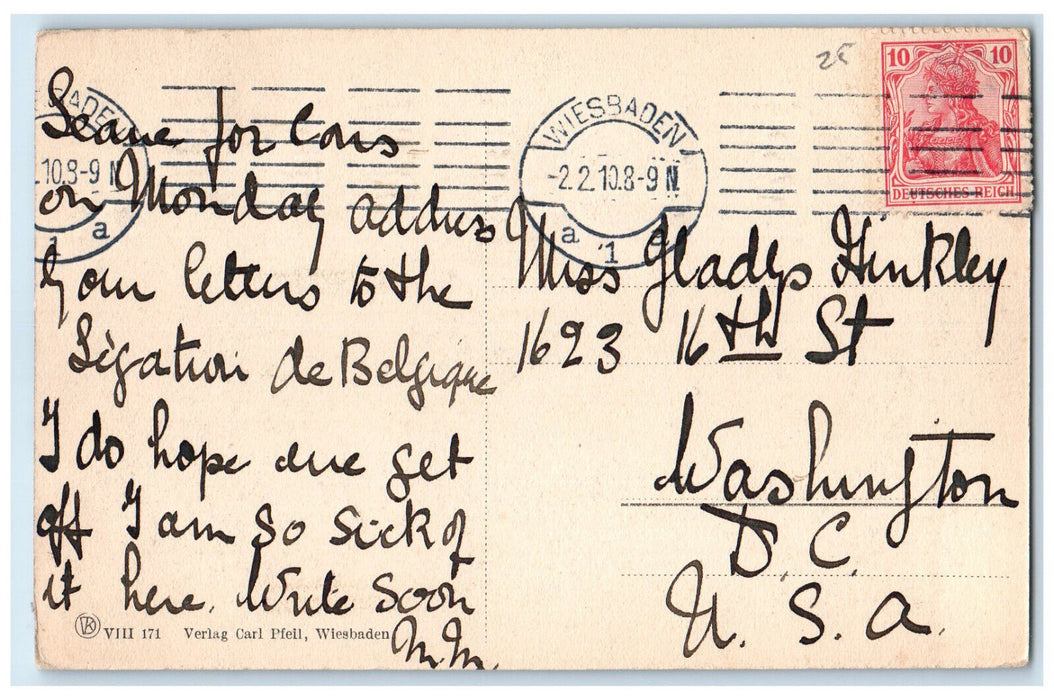 25
10 10
DEUTSCHES REICH
WIESBADEN
-2.2.10.8-9 N
a 1 a
ADEN
.10.8-9 N
1 a
Leave for Cons
on Monday address
your letters to the
Légation de Belgique
I do hope we get
off I am so sick of
it here. Write soon
M.M.
Miss Gladys Hinkley
1623 16th St
Washington
D. C.
U. S. A.
VIII 171 Verlag Carl Pfeil, Wiesbaden